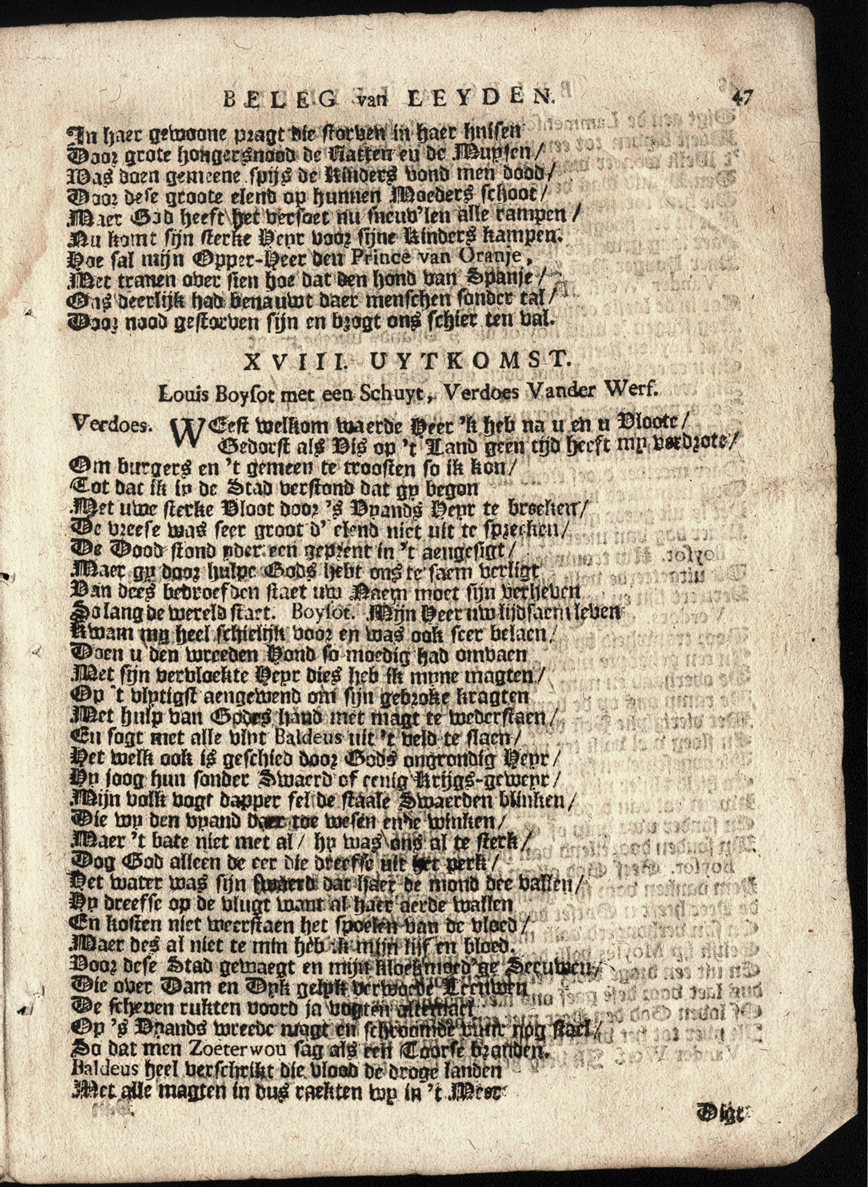 BELEG van LEYDEN. 47
In haer gewoone pragt die storven in haer huisen
Door grote hongersnood de Katten en de Muysen/
Was doen gemeene spijs de Kinders vond men dood/
Door dese groote elend op hunnen Moeders schoot/
Maer God heeft het versoet nu sneuv'len alle rampen/
Nu komt sijn sterke Heyr voor sijne Kinders kampen.
Hoe sal mijn Opper-Heer den Prince van Oranje,
Met tranen over sien hoe dat den hond van Spanje/
Ons deerlijk had benauwt daer menschen sonder tal/
Door nood gestorven sijn en brogt ons schier ten val.
XVIII. UYTKOMST.
Louis Boysot met een Schuyt, Verdoes Vander Werf.
Verdoes. WEest welkom waerde Heer 'k heb na u en u Vloote/
Gedorst als Vis op 't Land geen tijd heeft my verdrote/
Om burgers en 't gemeen te troosten so ik kon/
Tot dat ik in de Stad verstond dat gy begon
Met uwe sterke Vloot door 's Vyands Heyr te breeken/
De vreese was seer groot d' elend niet uit te spreeken/
De Dood stond yder een geprent in 't aengesigt/
Maer gy door hulpe Gods hebt ons te saem verligt
Van dees bedroefden staet uw Naem moet sijn verheven
So lang de wereld staet. Boysot. Mijn Heer uw lijdsaem leven
Kwam my heel schielijk voor en was ook seer belaen/
Doen u den wreeden Hond so moedig had omvaen
Met sijn vervloekte Heyr dies heb ik myne magten/
Op 't vlytigst aengewend om sijn gebroke kragten
Met hulp van Godes hand met magt te wederstaen/
En sogt met alle vlyt Baldeus uit 't veld te slaen/
Het welk ook is geschied door Gods ongrondig Heyr/
Hy joog hun sonder Swaerd of eenig Krijgs-geweyr/
Mijn volk vogt dapper fel de staale Swaerden blinken/
Die wy den vyand daer toe wesen en'e winken/
Maer 't bate niet met al/ hy was ons al te sterk/
Dog God alleen de eer die dreefse uit het perk/
Het water was sijn swaerd dat haer de mond dee vallen/
Hy dreefse op de vlugt want al haer aerde wallen
En kosten niet weerstaen het spoelen van de vloed/
Maer des al niet te min heb ik mijn lijf en bloed.
Voor dese Stad gewaegt en mijn kloekmoed'ge Seeuwen/
Die over Dam en Dyk gelyk verwoede Leeuwen
De schepen rukten voord ja vogten altemael
Op 's Vyands wreede magt en schroomde vuur nog stael/
So dat men Zoeterwou sag als een Toorse branden.
Baldeus heel verschrikt die vlood de droge landen
Met alle magten in dus raekten wy in 't Meer
Digt